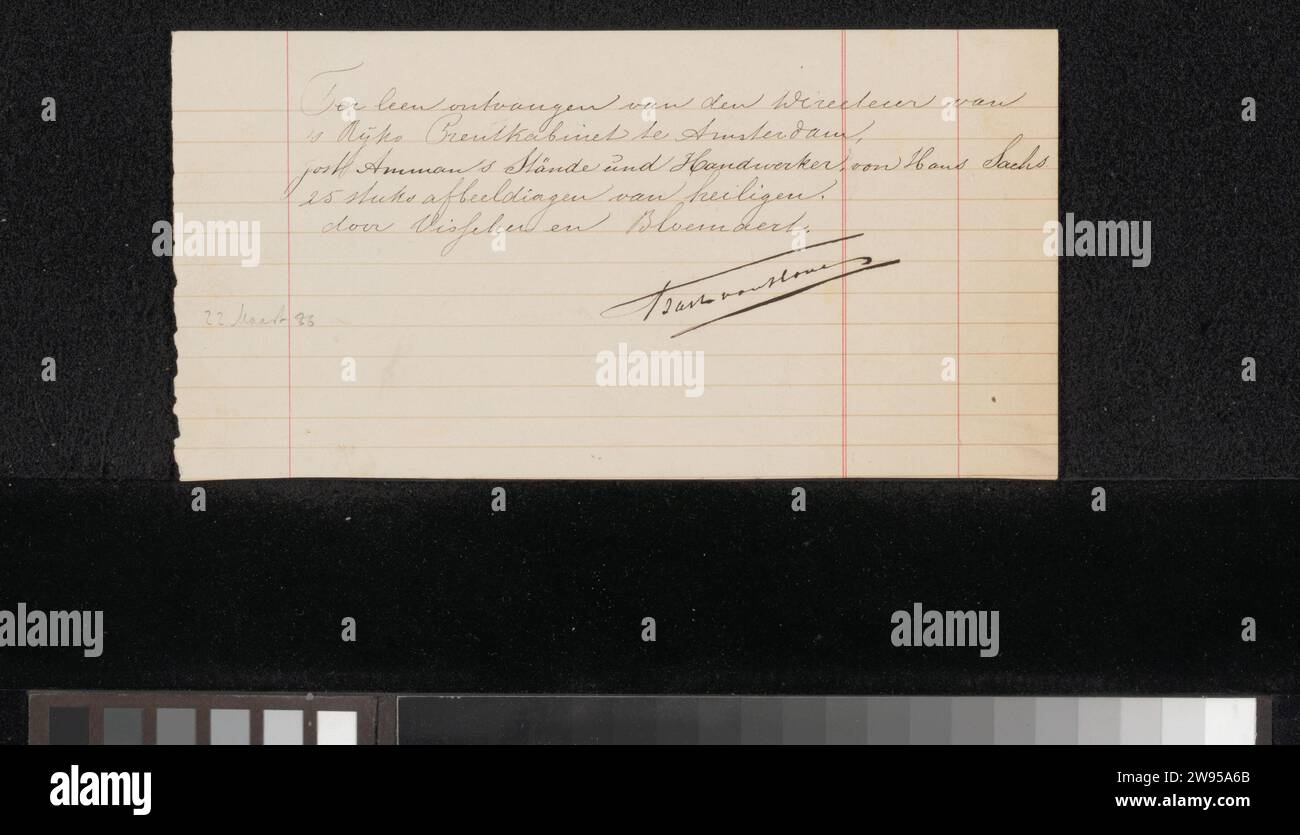 Ter leen ontvangen van den Directeur van
's Rijks Prentkabinet te Amsterdam,
jost Amman's Stände und Handwerker, von Hans Sachs
25 stuks afbeeldingen van heiligen.
door Visscher en Bloemaert.
Bart van Hove
22 Maart 83
alamy
alamy
alamy
alamy
alamy
alamy
Image ID: 2W95A6B
www.alamy.com